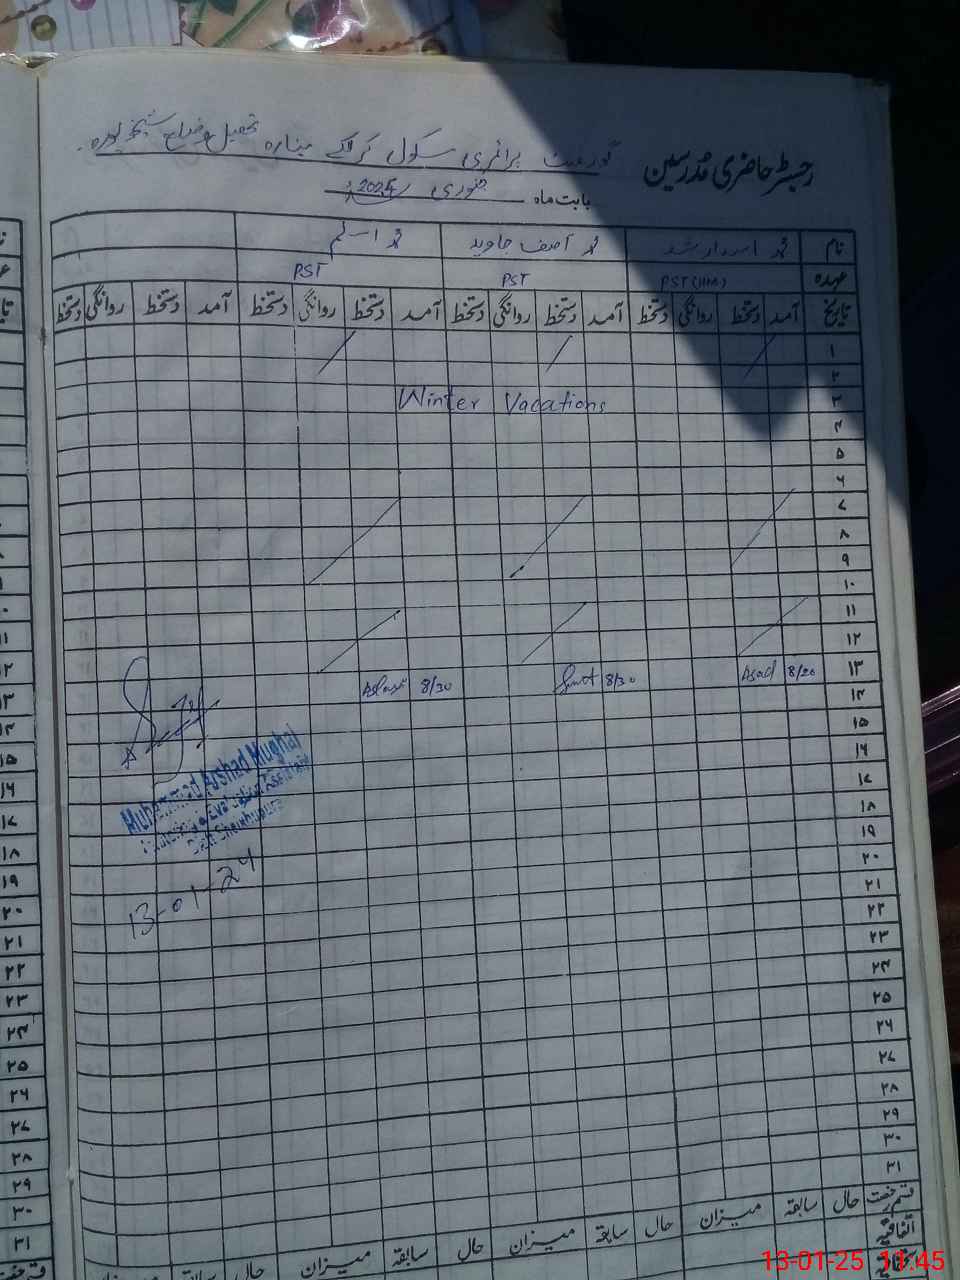 رجسٹر حاضری مدرسین گورنمنٹ پرائمری سکول کرلکے مینارہ تحصیل و ضلع شیخوپورہ
بابت ماہ جنوری 2025ء
نام محمد اسد ارشد محمد آصف جاوید محمد اسلم
عہدہ PST (HM) PST PST
تاریخ آمد دستخط روانگی دستخط آمد دستخط روانگی دستخط آمد دستخط روانگی دستخط آمد دستخط روانگی دستخط
۱
۲
۳ Winter Vacations
۴
۵
۶
۷
۸
۹
۱۰
۱۱
۱۲
۱۳ 8/20 Asad 8/30 8/30
۱۴
۱۵
۱۶
۱۷
Muhammad Arshad Mughal
Monitoring & Evaluation Assistant
Distt Sheikhupura
۱۸
۱۹
13-01-24
۲۰
۲۱
۲۲
۲۳
۲۴
۲۵
۲۶
۲۷
۲۸
۲۹
۳۰
۳۱
قسم رخصت حال سابقہ میزان حال سابقہ میزان حال سابقہ میزان حال
اتفاقیہ
13-01-25 11:45